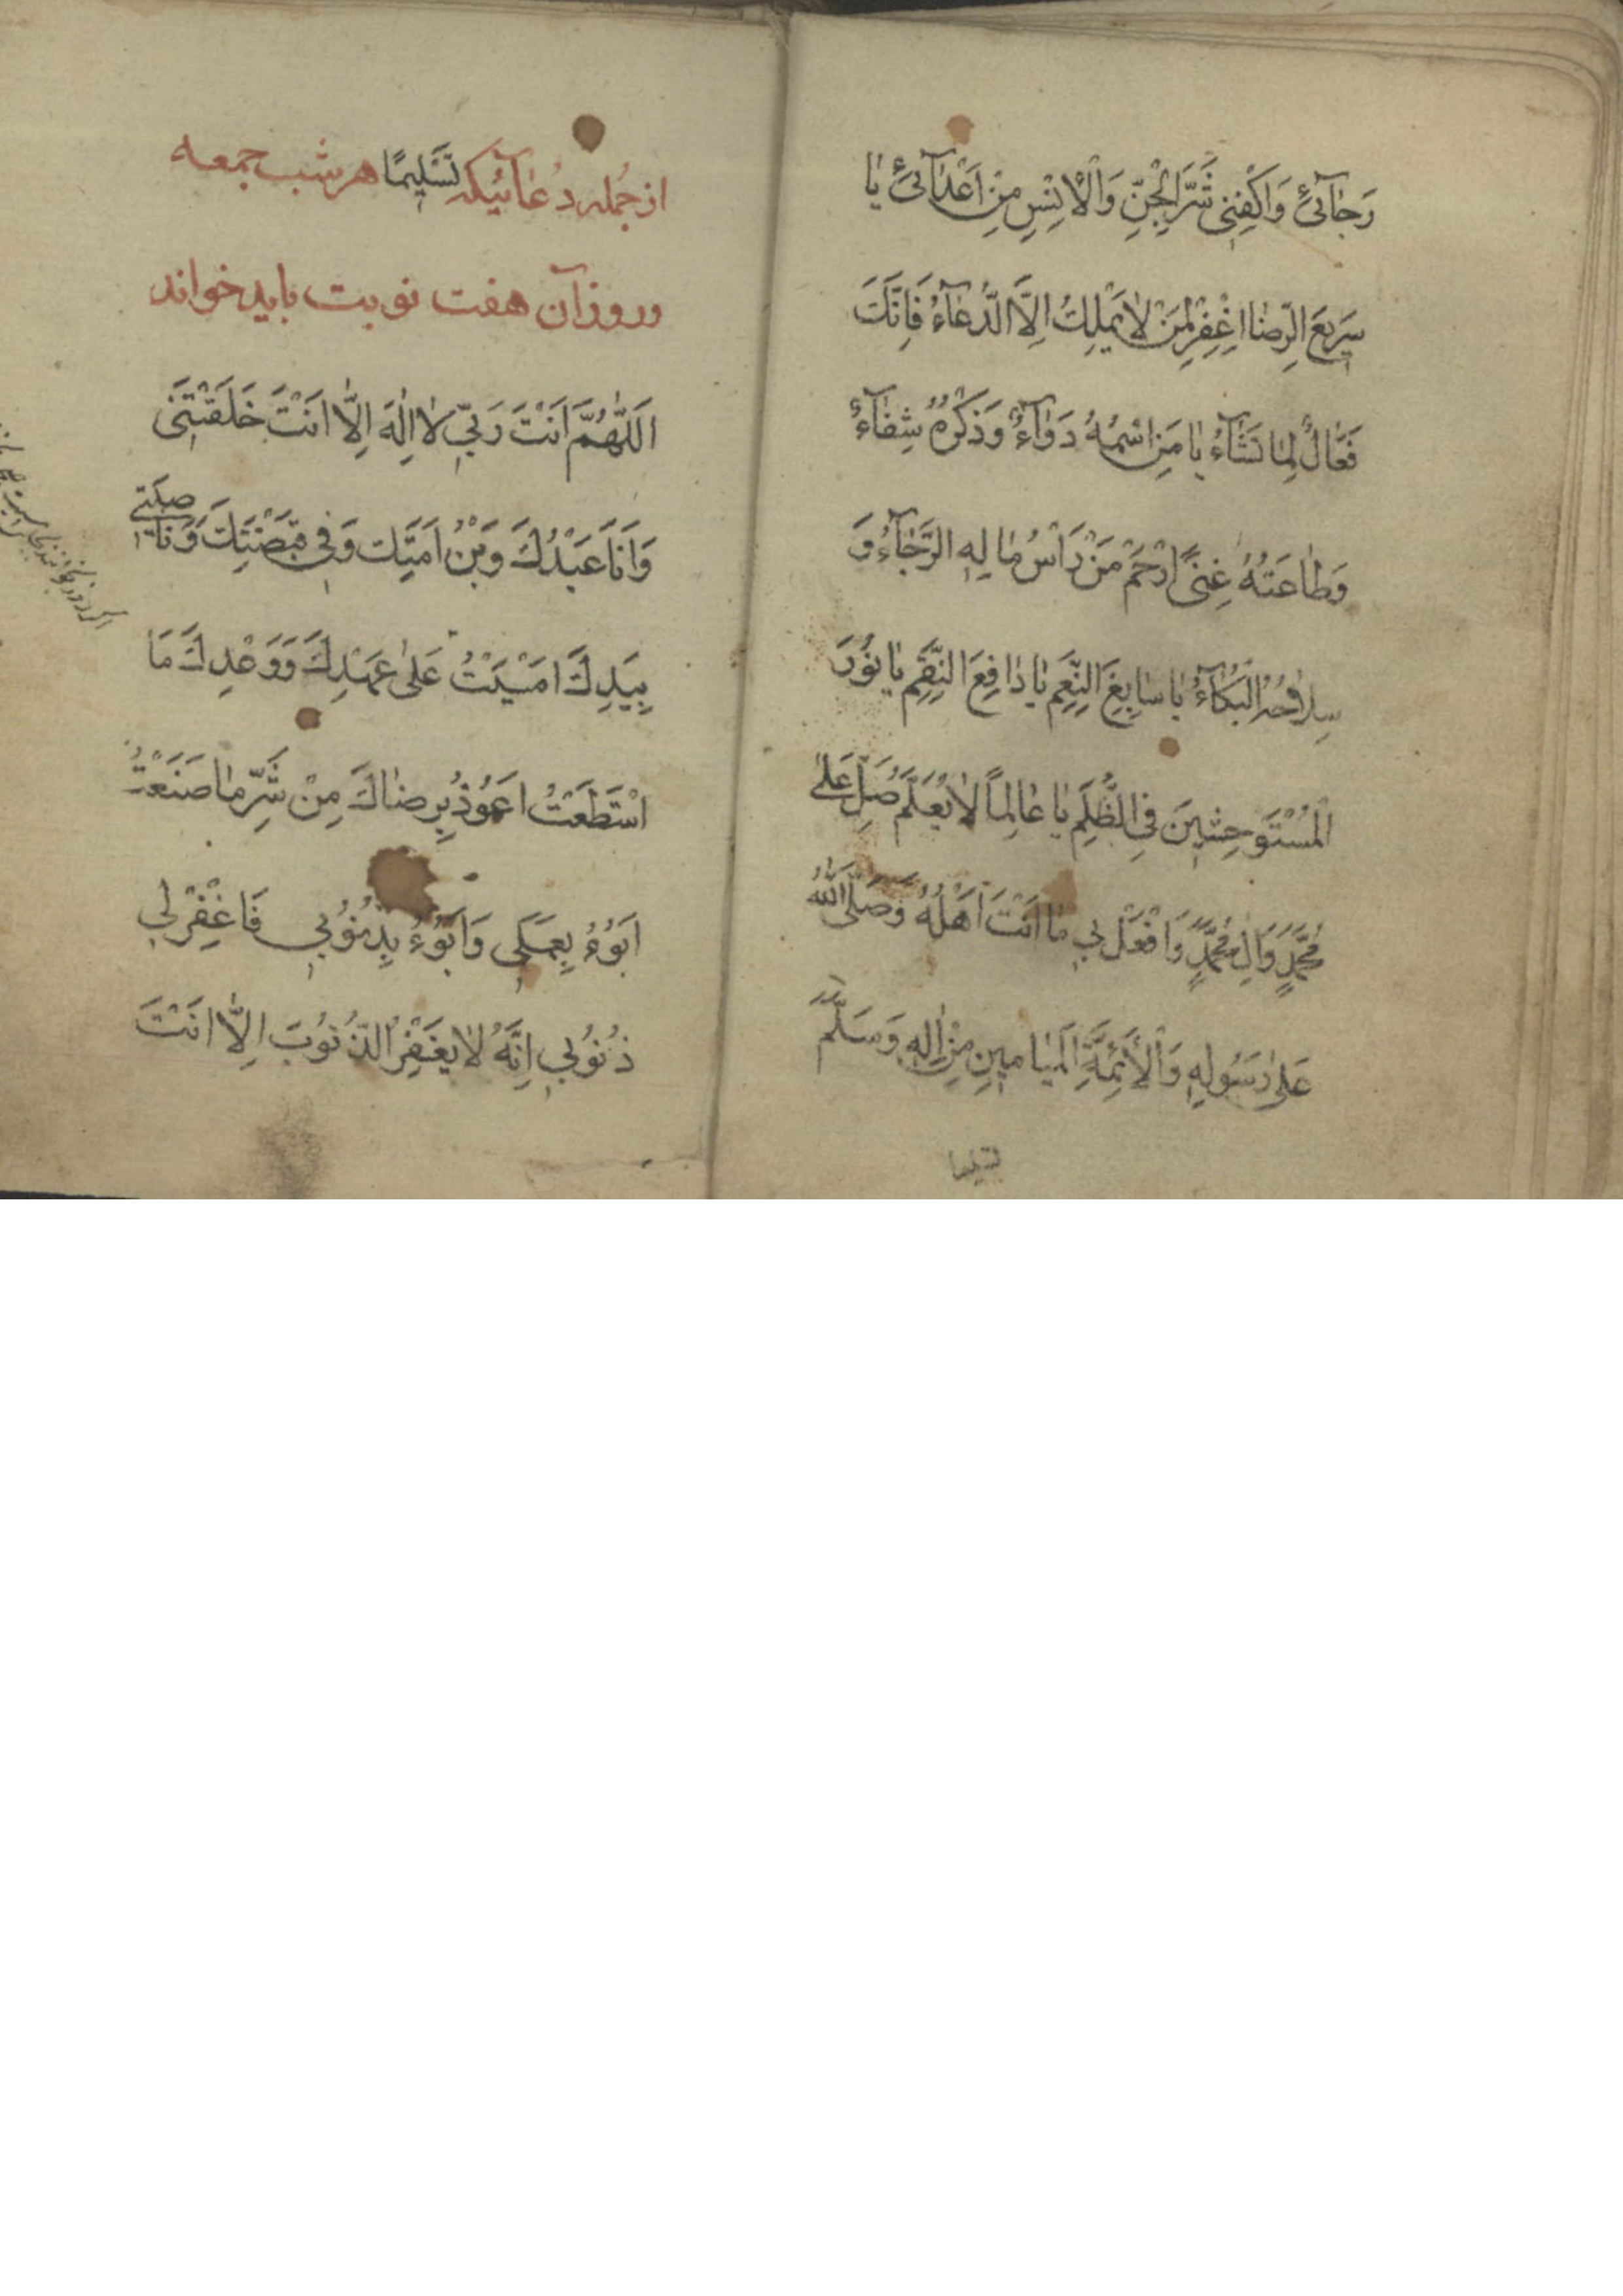 رَجٰآئئ وَاكْفِنِى شَرَّ الْجِنِّ وَالْاِنْسِ مِنْ اَعْدٰآئئ يٰا
سَرِيعَ الرِّضٰا اغْفِرْ لِمَنْ لٰا يَمْلِكُ اِلَّا الدُّعٰآءُ فَاِنَّكَ
فَعّٰالٌ لِمٰا تَشٰآءُ يٰا مَنِ اسْمُهُ دَوٰآءٌ وَذِكْرُهُ شِفٰآءٌ
وَطٰاعَتُهُ غِنىً ارْحَمْ مَنْ رَاْسُ مٰالِهِ الرَّجٰآءُ وَ
سِلٰاحُهُ الْبُكٰآءُ يٰا سٰابِغَ النِّعَمِ يٰا دٰافِعَ النِّقَمِ يٰا نُورَ
الْمُسْتَوْحِشِينَ فِى الظُّلَمِ يٰا عٰالِماً لٰا يُعَلَّمُ صَلِّ عَلىٰ
مُحَمَّدٍ وَاٰلِ مُحَمَّدٍ وَافْعَلْ بِي مٰا اَنْتَ اَهْلُهُ وَصَلَّى اللّٰهُ
عَلىٰ رَسُولِهِ وَالْأَئِمَّةِ الْمَيٰامِينِ مِنْ اٰلِهِ وَسَلَّمَ
تسليما
از جُمله دُعٰآئيكه تَسْلِيمًا هر شب جمعه
و روز آن هفت نوبت بايد خواند
اَللّٰهُمَّ اَنْتَ رَبِّي لٰا اِلٰهَ اِلَّا اَنْتَ خَلَقْتَنِى
وَاَنَا عَبْدُكَ وَبْنُ اَمَتِكَ وَفِي قَبْضَتِكَ وَنٰاصِيَتِي
بِيَدِكَ اَمْسَيْتُ عَلىٰ عَهْدِكَ وَوَعْدِكَ مَا
اسْتَطَعْتُ اَعُوذُ بِرِضٰاكَ مِنْ شَرِّ مٰا صَنَعْتُ
اَبُوءُ بِعَمَلِى وَاَبُوءُ بِذُنُوبِي فَاغْفِرْ لِي
ذُنُوبِي اِنَّهُ لٰا يَغْفِرُ الذُّنُوبَ اِلَّا اَنْتَ